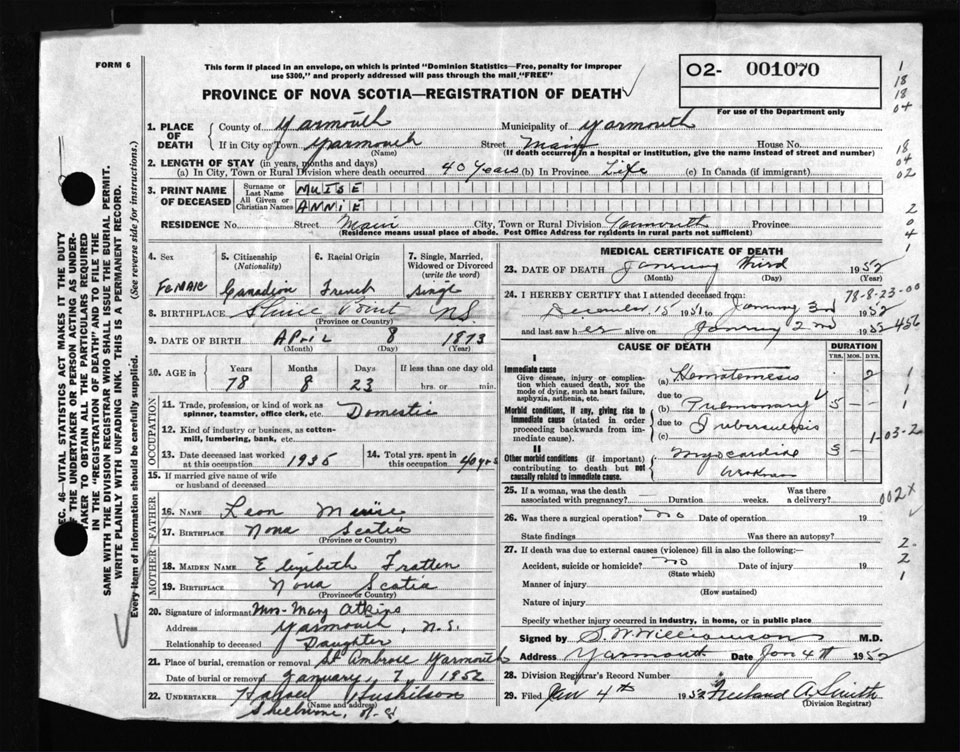 FORM 6
This form if placed in an envelope, on which is printed "Dominion Statistics—Free, penalty for improper
use $300," and properly addressed will pass through the mail "FREE"
PROVINCE OF NOVA SCOTIA—REGISTRATION OF DEATH
02- 001070
For use of the Department only
1. PLACE OF DEATH County of Yarmouth Municipality of Yarmouth
If in City or Town Yarmouth Street Main House No.
(Name) (If death occurred in a hospital or institution, give the name instead of street and number)
2. LENGTH OF STAY (in years, months and days)
(a) In City, Town or Rural Division where death occurred 40 years (b) In Province Life (c) In Canada (if immigrant)
3. PRINT NAME OF DECEASED
Surname or Last Name MUISE
All Given or Christian Names ANNIE
RESIDENCE No. Street Main City, Town or Rural Division Yarmouth Province
(Residence means usual place of abode. Post Office Address for residents in rural parts not sufficient)
4. Sex 5. Citizenship (Nationality) 6. Racial Origin 7. Single, Married, Widowed or Divorced (write the word)
Female Canadian French Single
8. BIRTHPLACE Point N.S.
(Province or Country)
9. DATE OF BIRTH April 8 1873
(Month) (Day) (Year)
10. AGE in Years Months Days If less than one day old
78 8 23 hrs. or min.
OCCUPATION
11. Trade, profession, or kind of work as spinner, teamster, office clerk, etc. Domestic
12. Kind of industry or business, as cotten-mill, lumbering, bank, etc.
13. Date deceased last worked at this occupation 1935 14. Total yrs. spent in this occupation 40 yrs
15. If married give name of wife or husband of deceased
FATHER
16. NAME Leon
17. BIRTHPLACE Nova Scotia
(Province or Country)
MOTHER
18. MAIDEN NAME Elizibeth
19. BIRTHPLACE Nova Scotia
(Province or Country)
20. Signature of informant Mrs. Mary Atkins
Address Yarmouth, N.S.
Relationship to deceased Daughter
21. Place of burial, cremation or removal St Ambrose Yarmouth
Date of burial or removal January 7 1952
22. UNDERTAKER
(Name and address)
Shelburne, N.S.
MEDICAL CERTIFICATE OF DEATH
23. DATE OF DEATH January third 1952
(Month) (Day) (Year)
24. I HEREBY CERTIFY that I attended deceased from: 78-8-23-00
December 15 1951 to January 3rd 1952
and last saw her alive on January 2nd 1952 -456
CAUSE OF DEATH DURATION
YRS. MOS. DYS.
I
Immediate cause
Give disease, injury or complication which caused death, NOT the mode of dying, such as heart failure, asphyxia, asthenia, etc.
(a) Hematemesis 2
due to
Morbid conditions, if any, giving rise to immediate cause (stated in order proceeding backwards from immediate cause).
(b) Pulmonary 5
due to Tuberculosis
(c)
1-03-2
II
Other morbid conditions (if important) contributing to death but not causally related to immediate cause.
Myocardial 5
25. If a woman, was the death associated with pregnancy? Duration weeks. Was there a delivery?
002X
26. Was there a surgical operation? no Date of operation 19
State findings Was there an autopsy?
27. If death was due to external causes (violence) fill in also the following:—
Accident, suicide or homicide? no Date of injury 19
(State which)
Manner of injury
(How sustained)
Nature of injury
Specify whether injury occurred in industry, in home, or in public place
Signed by S. W. Williamson M.D.
Address Yarmouth Date Jan 4th 1952
28. Division Registrar's Record Number
29. Filed Jan 4th 1952 Freeland A. Smith
(Division Registrar)
SEC. 46—VITAL STATISTICS ACT MAKES IT THE DUTY
OF THE UNDERTAKER OR PERSON ACTING AS UNDER-
TAKER TO OBTAIN ALL THE PARTICULARS REQUIRED
IN THE "REGISTRATION OF DEATH" AND TO FILE THE
SAME WITH THE DIVISION REGISTRAR WHO SHALL ISSUE THE BURIAL PERMIT.
WRITE PLAINLY WITH UNFADING INK. THIS IS A PERMANENT RECORD.
Every item of information should be carefully supplied. (See reverse side for instructions.)
1
18
18
04
18
04
02
2
0
4
1
1
1
1
2
2
1